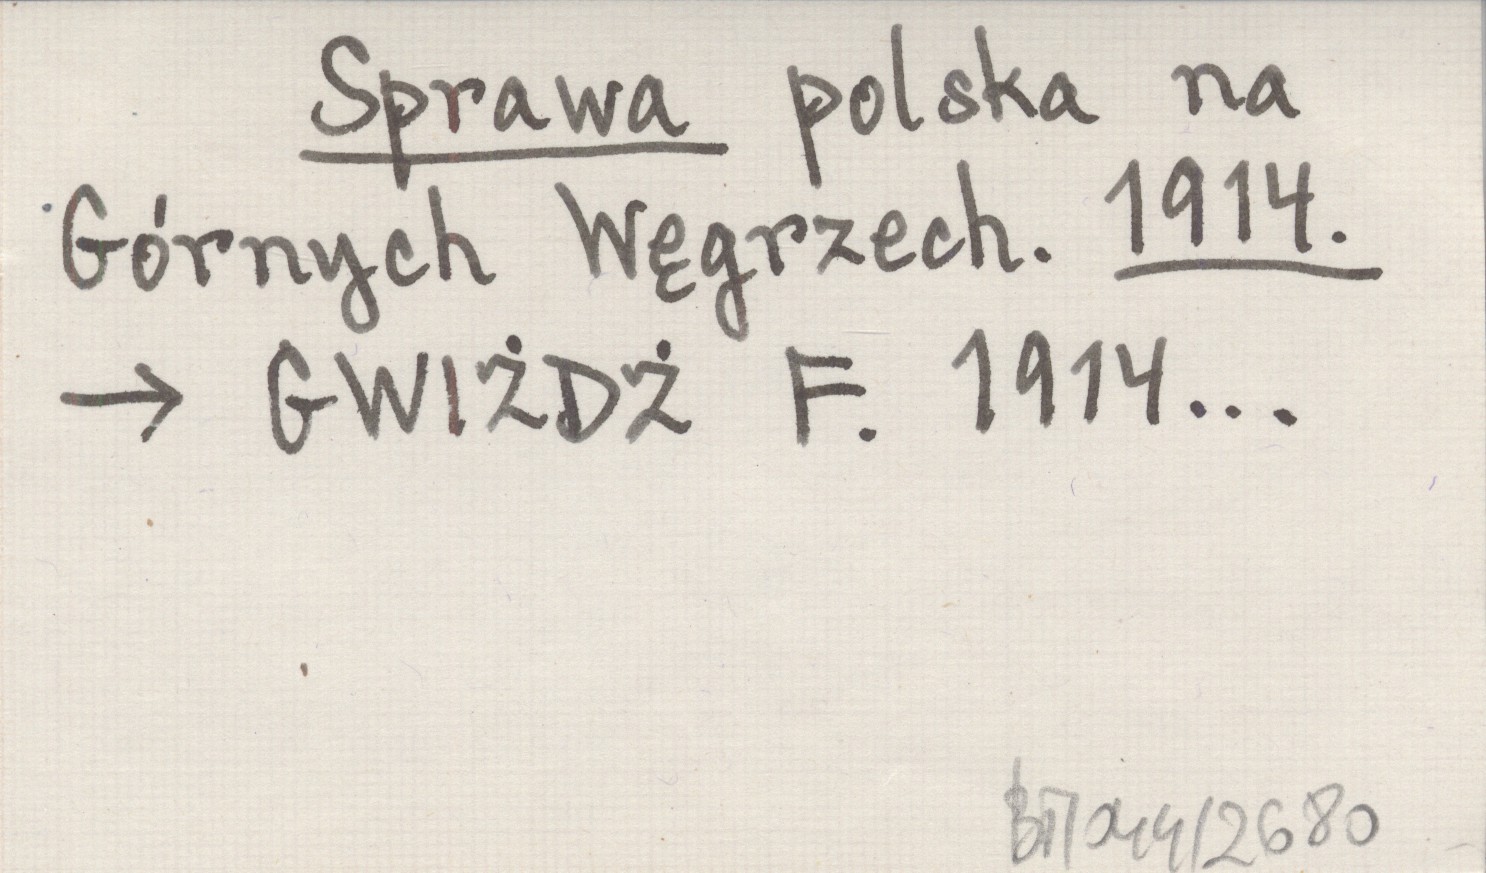 Sprawa polska na
Górnych Węgrzech. 1914.
→ GWIŻDŻ F. 1914...